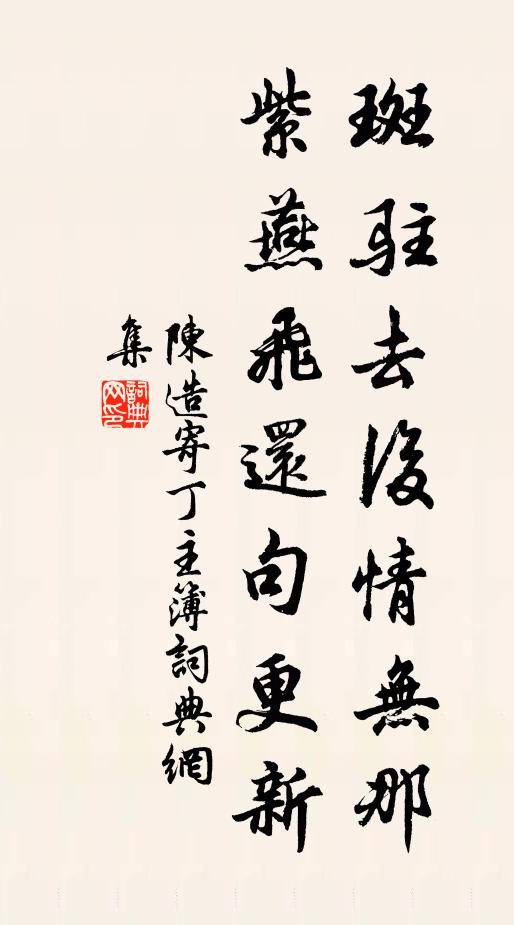 斑駐去後情無那
紫燕飛還句更新
陳造寄丁主簿詞典網
集
詞典網印